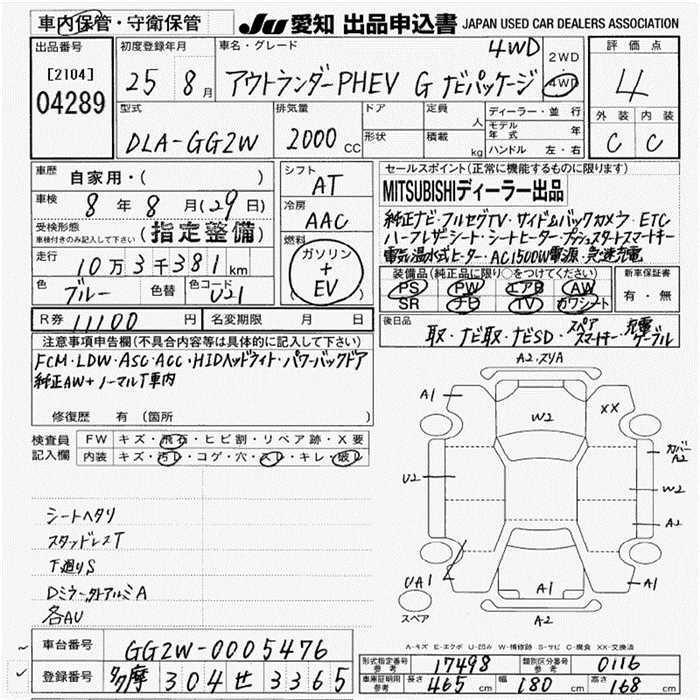 車内保管・守衛保管
JU 愛知 出品申込書 JAPAN USED CAR DEALERS ASSOCIATION
出品番号
[2104]
04289
初度登録年月
25 8月
車名・グレード
4WD
アウトランダーPHEV G ナビパッケージ
2WD
4WD
評価点
4
外装 内装
C C
型式
DLA-GG2W
排気量
2000 CC
ドア
形状
定員 人
積載 kg
ディーラー・並行
モデル年式 年
ハンドル 左・右
車歴
自家用・( )
車検
8年8月(29日)
受検形態
車検付きのみ記入して下さい
(指定整備)
走行
10万3千381km
色
ブルー
色替
色コード
U21
シフト
AT
冷房
AAC
燃料
ガソリン
+
EV
セールスポイント(正常に機能するものに限ります)
MITSUBISHIディーラー出品
純正ナビ・フルセグTV・サイド&バックカメラ・ETC
ハーフレザーシート・シートヒーター・プッシュスタートスマートキー
電気温水式ヒーター・AC1500W電源・急速充電
装備品(純正品に限り○をつけてください)
PS PW エアB AW
SR ナビ TV カワシート
新車保証書
有・無
R券 11100 円
名変期限 月 日
後日品
取・ナビ取・ナビSD・スペアスマートキー・充電ケーブル
注意事項申告欄(不具合内容等は具体的に記入して下さい)
FCM・LDW・ASC・ACC・HIDヘッドライト・パワーバックドア
純正AW+ノーマルT車内
修復歴 有(箇所 )
検査員
記入欄
FW キズ・飛石・ヒビ割・リペア跡・X要
内装 キズ・汚レ・コゲ・穴・スレ・キレ・破レ
シートヘタリ
スタッドレスT
下廻りS
Dミラー・外アルミA
各AU
A2・スリA
A1
W2
XX
カバーA2
U2
W2
A2
UA1
A1
A1
スペア
A2
A-キズ E-エクボ U-凹み W-補修跡 S-サビ C-腐食 XX-交換済
車台番号
GG2W-0005476
登録番号
多摩 304 せ 3365
形式指定番号
参考
17498
類別区分番号
参考
0116
車庫証明用
参考
長さ 465 cm 幅 180 cm 高さ 168 cm